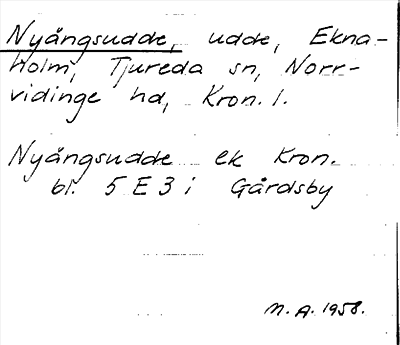 Nyångsudde, udde, Ekna-
holm, Tjureda sn, Norr-
vidinge hd, Kron. l.
Nyångsudde ek Kron.
bl. 5 E 3 i Gårdsby
M. A. 1958.